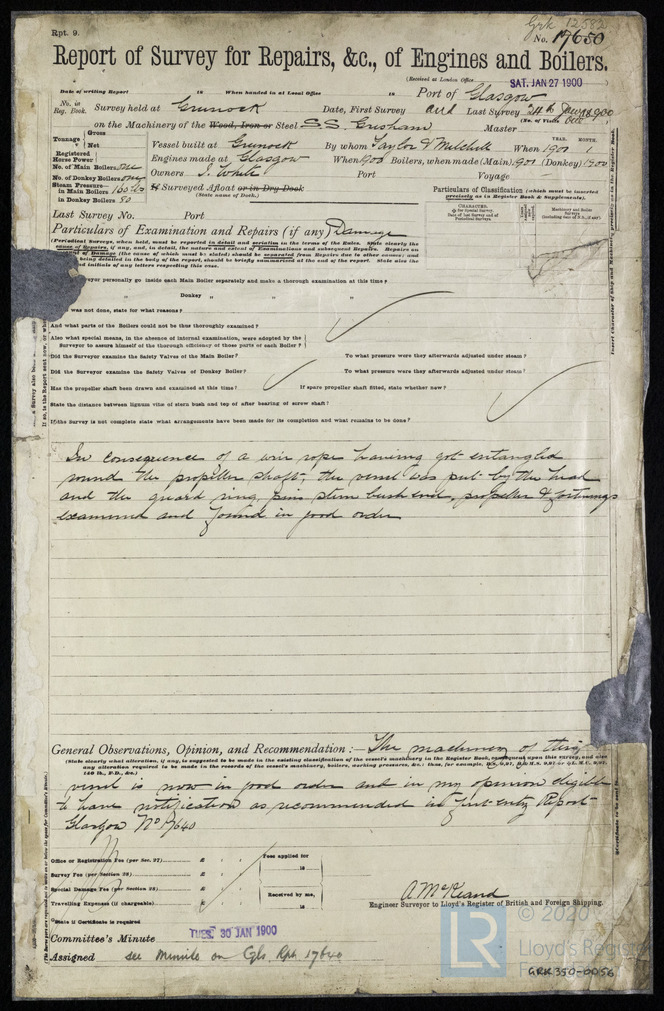 Rpt. 9.
Grk 12582
No. 17650
Report of Survey for Repairs, &c., of Engines and Boilers.
(Received at London Office
SAT. JAN 27 1900
Date of writing Report 18 When handed in at Local Office 18 Port of Glasgow
No. in Reg. Book. Survey held at Greenock Date, First Survey and Last Survey 24th Jan 1900
(No. of Visits One
on the Machinery of the Wood, Iron or Steel S.S. Gresham Master
Tonnage Gross Net
Vessel built at Greenock By whom Taylor & Mitchell When 1900 1
YEAR. MONTH.
Registered Horse Power
Engines made at Glasgow When 900 Boilers, when made (Main) 901 (Donkey) 1900
No. of Main Boilers one
No. of Donkey Boilers one
Owners J. White Port Voyage
Steam Pressure—
in Main Boilers 160 lbs
in Donkey Boilers 80
If Surveyed Afloat or in Dry Dock
(State name of Dock.)
Particulars of Classification (which must be inserted precisely as in Register Book & Supplements).
Last Survey No. Port
Particulars of Examination and Repairs (if any) Damage
(Periodical Surveys, when held, must be reported in detail and seriatim in the terms of the Rules. State clearly the
cause of Repairs, if any, and, in detail, the nature and extent of Examinations and subsequent Repairs. Repairs on
account of Damage (the cause of which must be stated) should be separated from Repairs due to other causes; and
being detailed in the body of the report, should be briefly summarised at the end of the report. State also the
and initials of any letters respecting this case.
veyor personally go inside each Main Boiler separately and make a thorough examination at this time?
" Donkey " " "
was not done, state for what reasons?
And what parts of the Boilers could not be thus thoroughly examined?
Also what special means, in the absence of internal examination, were adopted by the
Surveyor to assure himself of the thorough efficiency of those parts of each Boiler?
Did the Surveyor examine the Safety Valves of the Main Boiler? To what pressure were they afterwards adjusted under steam?
Did the Surveyor examine the Safety Valves of Donkey Boiler? To what pressure were they afterwards adjusted under steam?
Has the propeller shaft been drawn and examined at this time? If spare propeller shaft fitted, state whether new?
State the distance between lignum vitæ of stern bush and top of after bearing of screw shaft?
If the Survey is not complete state what arrangements have been made for its completion and what remains to be done?
In consequence of a wire rope having got entangled
round the propeller shaft, the vessel was put by the head
and the guard ring, pins stern bush end, propeller & fastenings
examined and found in good order
General Observations, Opinion, and Recommendation:— The machinery of this
(State clearly what alteration, if any, is suggested to be made in the existing classification of the vessel's machinery in the Register Book, consequent upon this survey, and also
any alteration required to be made in the records of the vessel's machinery, boilers, working pressures, &c.; thus, for example,
vessel is now in good order and in my opinion eligible
to have notification as recommended in first entry Report
Glasgow No 17640
Office or Registration Fee (per Sec. 27) £ : :
Survey Fee (per Section 28) £ : :
Special Damage Fee (per Section 28) £ : :
Travelling Expenses (if chargeable) £ : :
Fees applied for
18
Received by me,
18
A McKeand
Engineer Surveyor to Lloyd's Register of British and Foreign Shipping.
State if Certificate is required
Committee's Minute TUES. 30 JAN 1900
Assigned see Minute on Gls. Rpt. 17640
LR
© 2020
Lloyd's Register
GRK350-0056